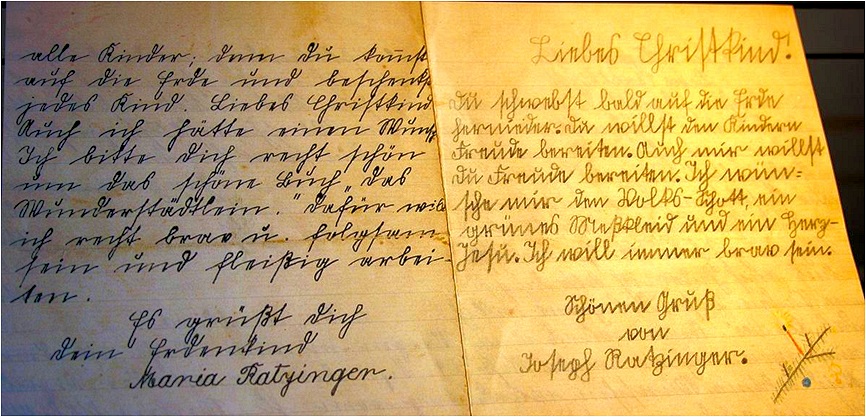 alle Kinder, denn du kommst
auf die Erde und beschenkst
jedes Kind. Liebes Christkind
Auch ich hätte einen Wunsch
Ich bitte dich recht schön
um das schöne Buch „das
Wunderstädtlein." Dafür will
ich recht brav u. folgsam
sein und fleißig arbei-
ten.
Es grüßt dich
dein Erdenkind
Maria Ratzinger.
Liebes Christkind!
Du schwebst bald auf die Erde
hernieder. Da willst den Kindern
Freude bereiten. Auch mir willst
du Freude bereiten. Ich wün-
sche mir den Volks-Schott, ein
grünes Meßkleid und ein Herz-
Jesu. Ich will immer brav sein.
Schönen Gruß
von
Joseph Ratzinger.